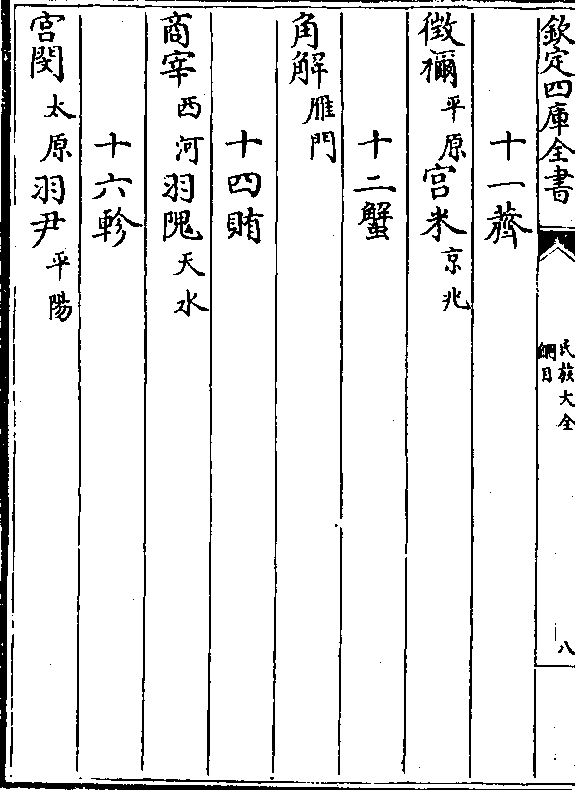 欽定四庫全書
民族大全
綱目
八
十一薺
徴禰平原宫米京兆
十二蟹
角解雁門
十四賄
商宰西河羽隗天水
十六軫
宫閔太原羽尹平陽